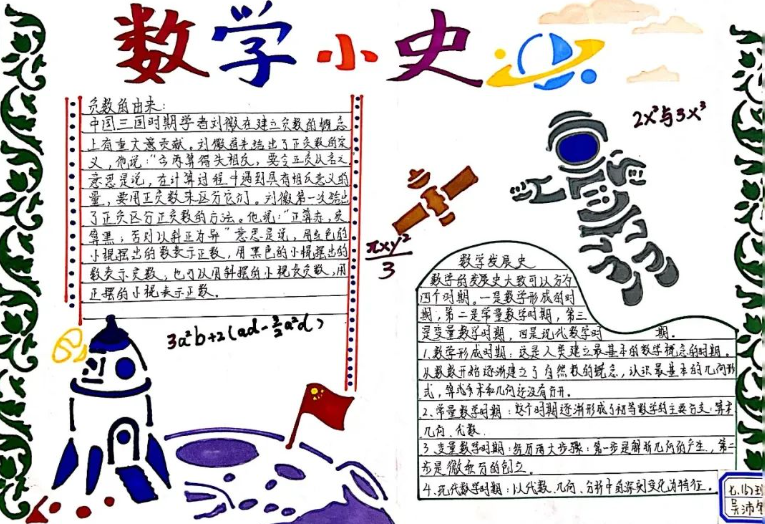 数学小史
负数的由来:
中国三国时期学者刘徽在建立负数的概念
上有重大贡献。刘徽首先给出了正负数的定
义,他说:"今两算得失相反,要令正负以名之
意思是说,在计算过程中遇到具有相反意义的
量,要用正负数来区分它们。刘徽第一次给出
了正负区分正负数的方法。他说:"正算赤,负
算黑;否则以斜正为异"意思是说,用红色的
小棍摆出的数表示正数,用黑色的小棍摆出的
数表示负数,也可以用斜摆的小棍表负数,用
正摆的小棍表示正数。
2x²与3x³
πxy²/3
3a²b+2(ad-d)
数学发展史
数学的发展史大致可以分为
四个时期。一是数学形成的时
期,第二是常量数学时期,第三
是变量数学时期,四是现代数学时期。
1.数学形成时期:这是人类建立最基本的数学概念的时期。
从数数开始逐渐建立了自然数的概念,认识最基本的几何形
式,算术和几何还没有分开。
2、常量数学时期:这个时期逐渐形成了初等数学的主要分支:算术
几何、代数.
3.变量数学时期:经历两大步骤:第一步是解析几何的产生,第二
步是微积分的创立。
4.现代数学时期:以代数、几何、分析中的深刻变化为特征。
吴沛